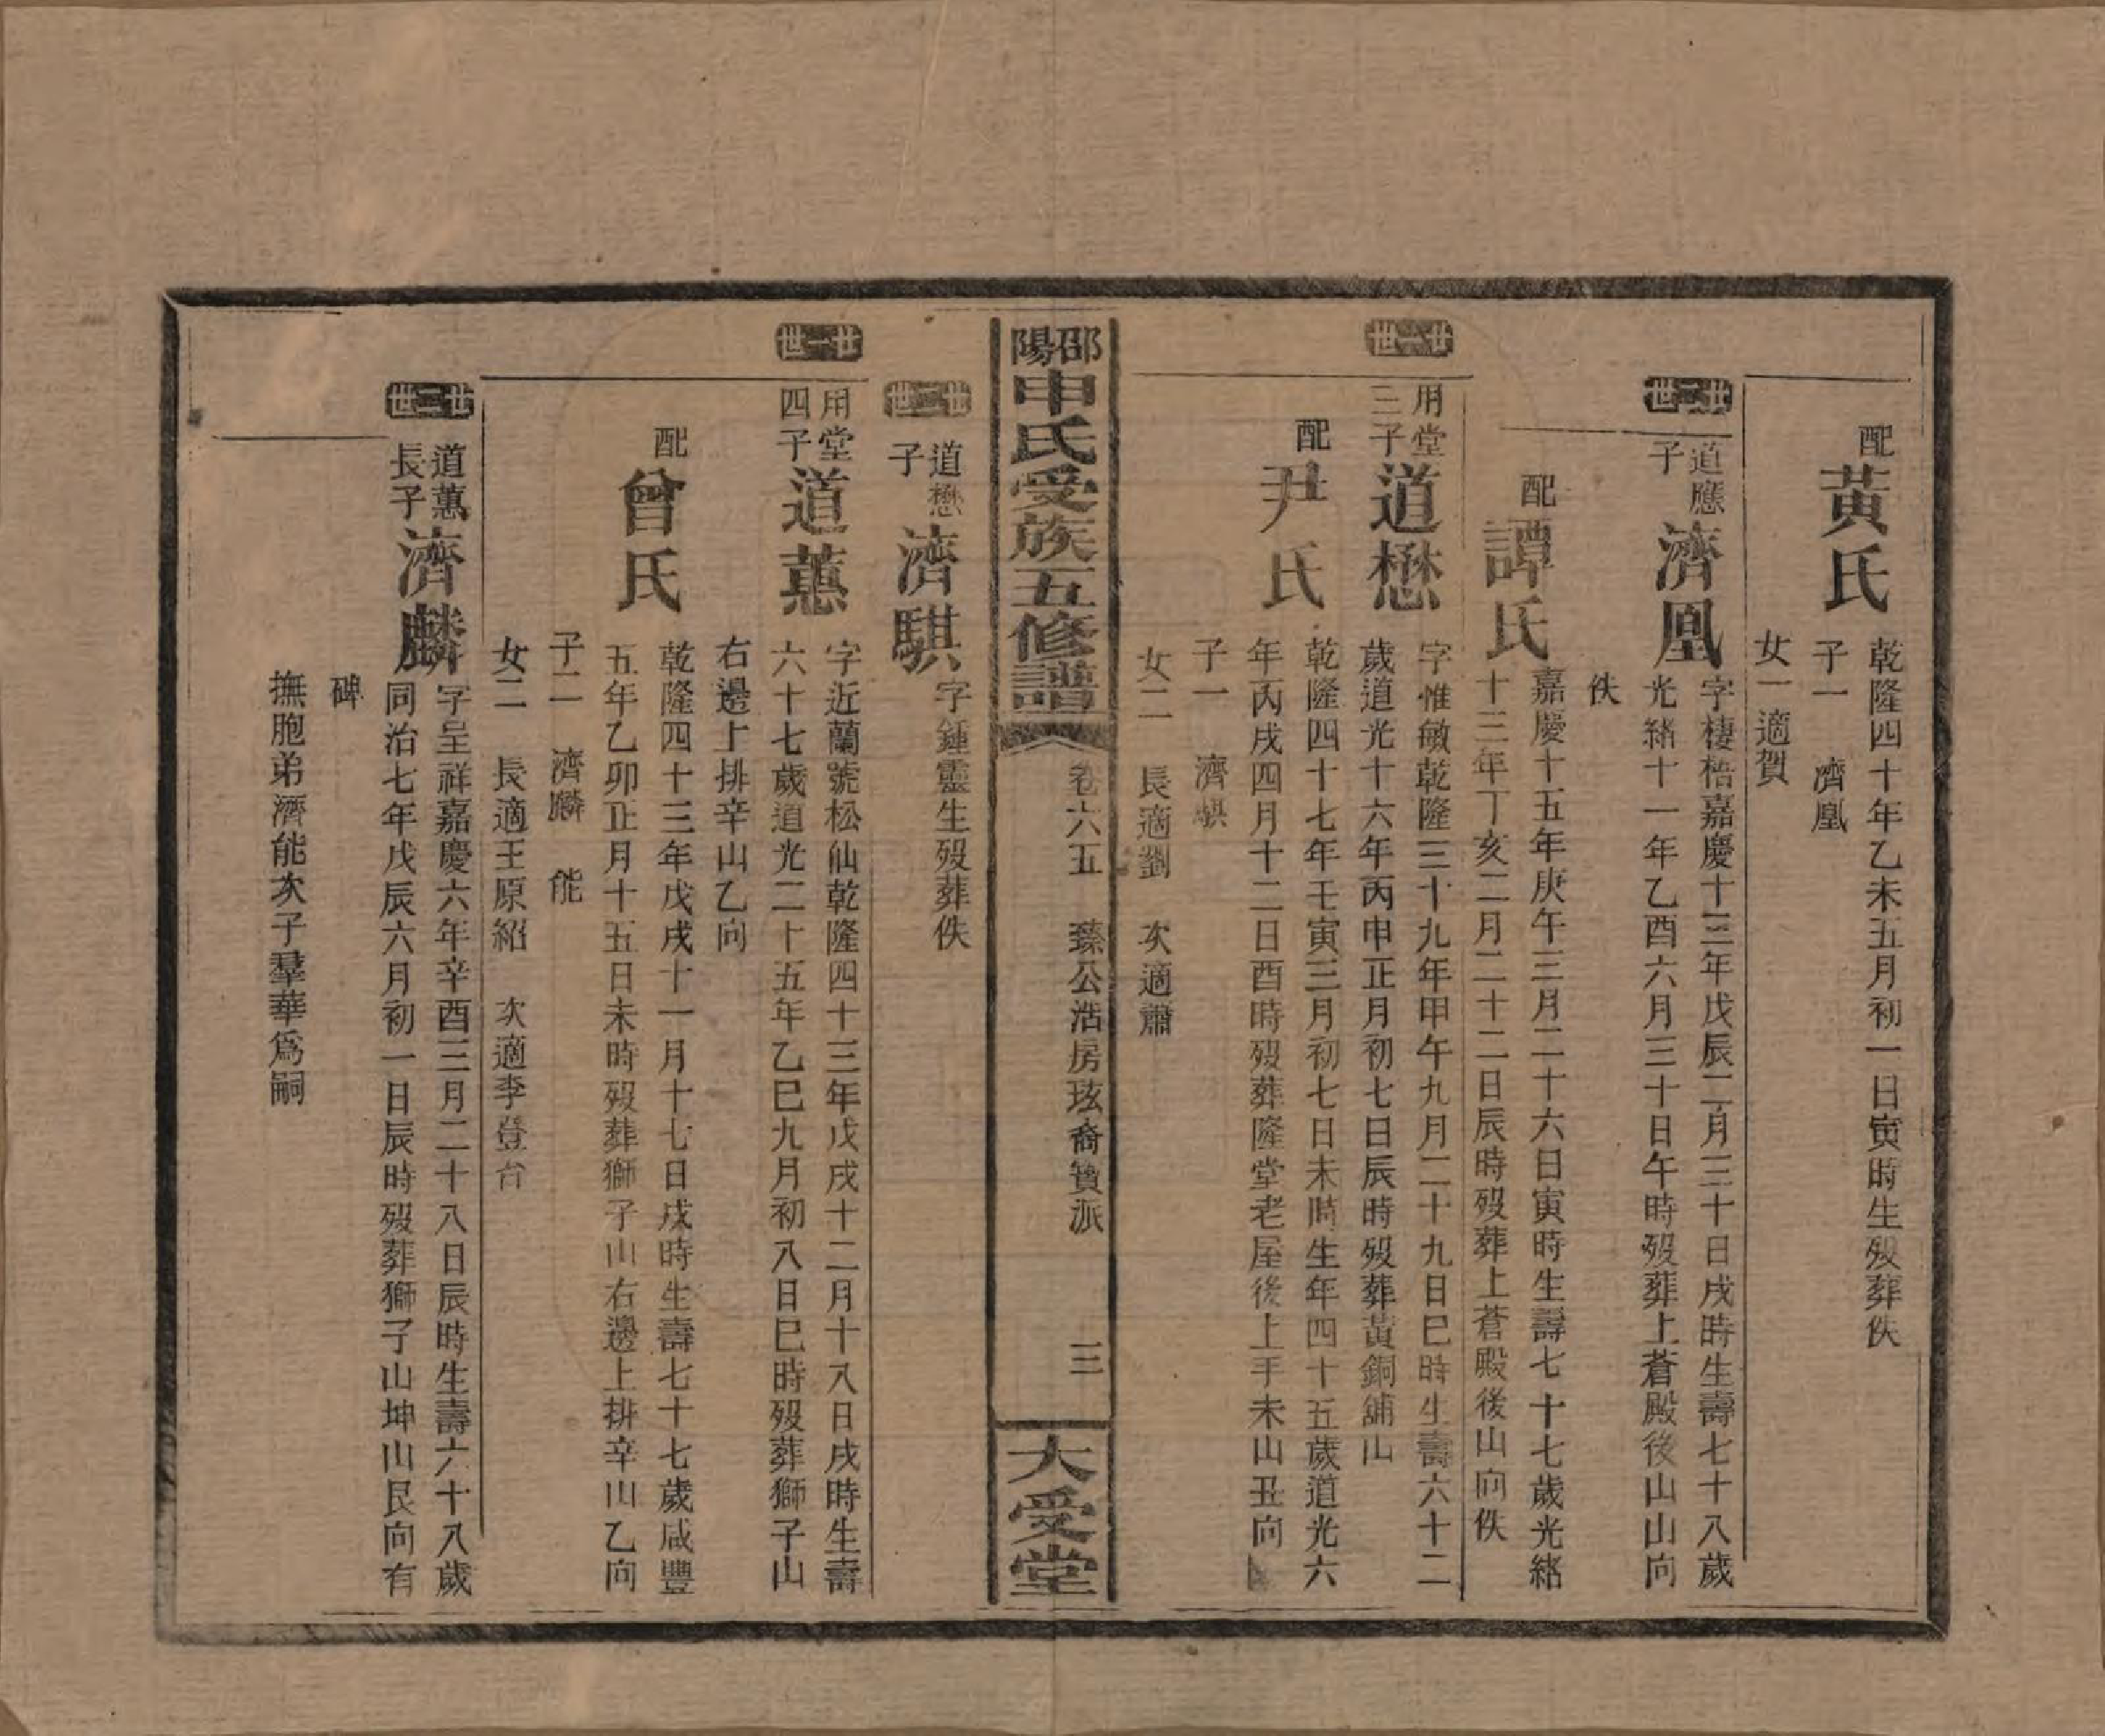 配
黃氏
乾隆四十年乙未五月初一日寅時生歿葬佚
子一 濟凰
女一適賀
廿二世
道應
子
濟凰
字棲梧嘉慶十三年戊辰二月三十日戌時生壽七十八歲
光緒十一年乙酉六月三十日午時歿葬上蒼殿後山山向
佚
配
譚氏
嘉慶十五年庚午三月二十六日寅時生壽七十七歲光緒
十三年丁亥二月二十二日辰時歿葬上蒼殿後山向佚
廿一世
用堂
三子
道懋
字惟敏乾隆三十九年甲午九月二十九日巳時生壽六十二
歲道光十六年丙申正月初七日辰時歿葬黃銅舖山
配
尹氏
乾隆四十七年壬寅三月初七日未時生年四十五歲道光六
年丙戌四月十二日酉時歿葬隆堂老屋後上手未山丑向
子一 濟騏
女二 長適劉 次適蕭
邵陽申氏受族五修譜
卷六五 臻公浩房玹裔贊派
三
大受堂
廿二世
道懋
子
濟騏
字鍾靈生歿葬佚
廿一世
用堂
四子
道蕙
字近蘭號松仙乾隆四十三年戊戌十二月十八日戌時生壽
六十七歲道光二十五年乙巳九月初八日巳時歿葬獅子山
右邊上排辛山乙向
配
曾氏
乾隆四十三年戊戌十一月十七日戌時生壽七十七歲咸豐
五年乙卯正月十五日未時歿葬獅子山右邊上排辛山乙向
子二 濟麟 能
女二 長適王原紹 次適李登台
廿二世
道蕙
長子
濟麟
字呈祥嘉慶六年辛酉三月二十八日辰時生壽六十八歲
同治七年戊辰六月初一日辰時歿葬獅子山坤山艮向有
碑
撫胞弟濟能次子羣華爲嗣